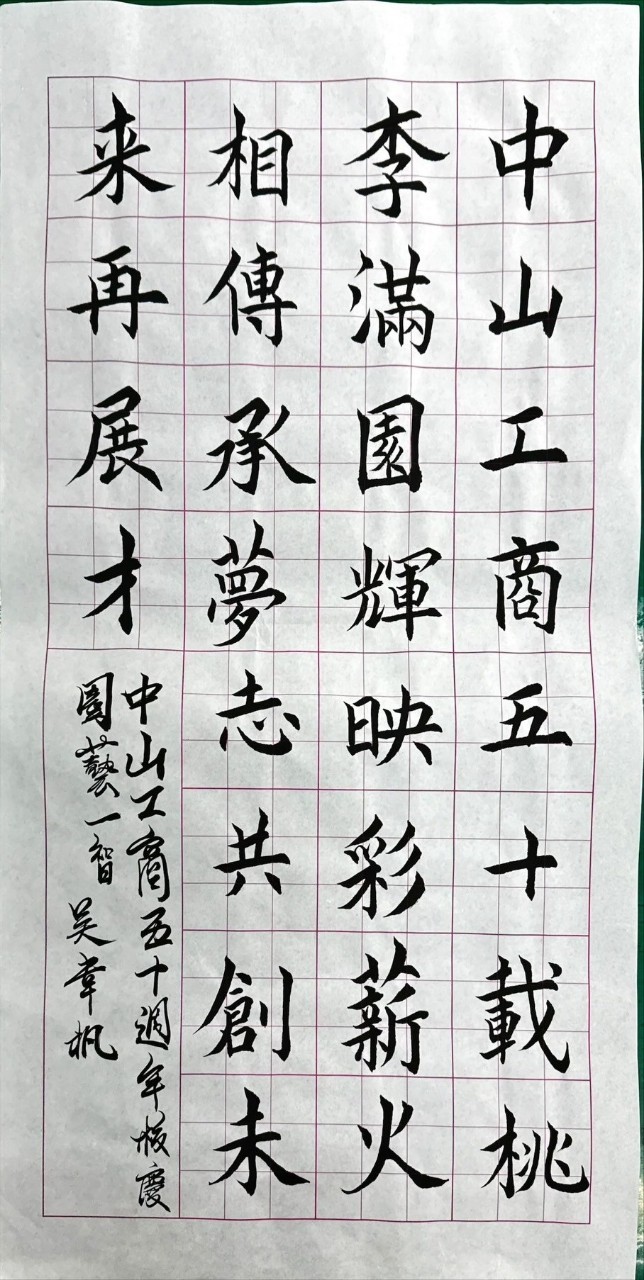 中山工商五十載桃
李滿園輝映彩薪火
相傳承夢志共創未
来再展才
中山工商五十週年校慶
園藝一智 吴韋楓